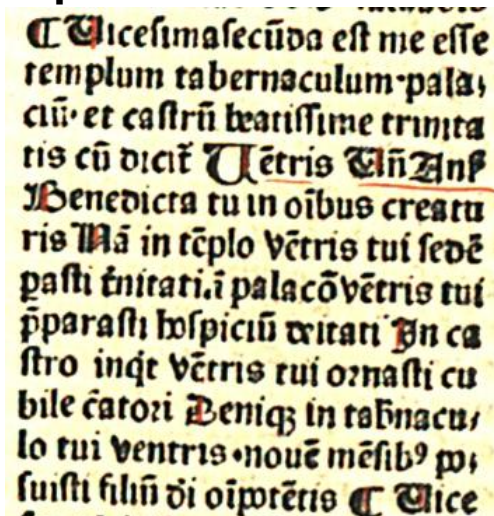 ¶ Uicesimasecūda est me esse
templum tabernaculum·pala,
ciū· et castrū beatissime trinita
tis cū dicit̄ Uētris Uñ Ansꝭ
Benedicta tu in oībus creatu
ris Nā in tēplo vētris tui sedē
pasti t̄nitati.ī palacō vētris tui
p̄parasti hospiciū deitati In ca
stro inqͥt vētris tui ornasti cu
bile c̄atori Deniqꝫ in tab̄nacu,
lo tui ventris·nouē mēsibꝰ po,
suisti filiū di oīpotētis ¶ Uice